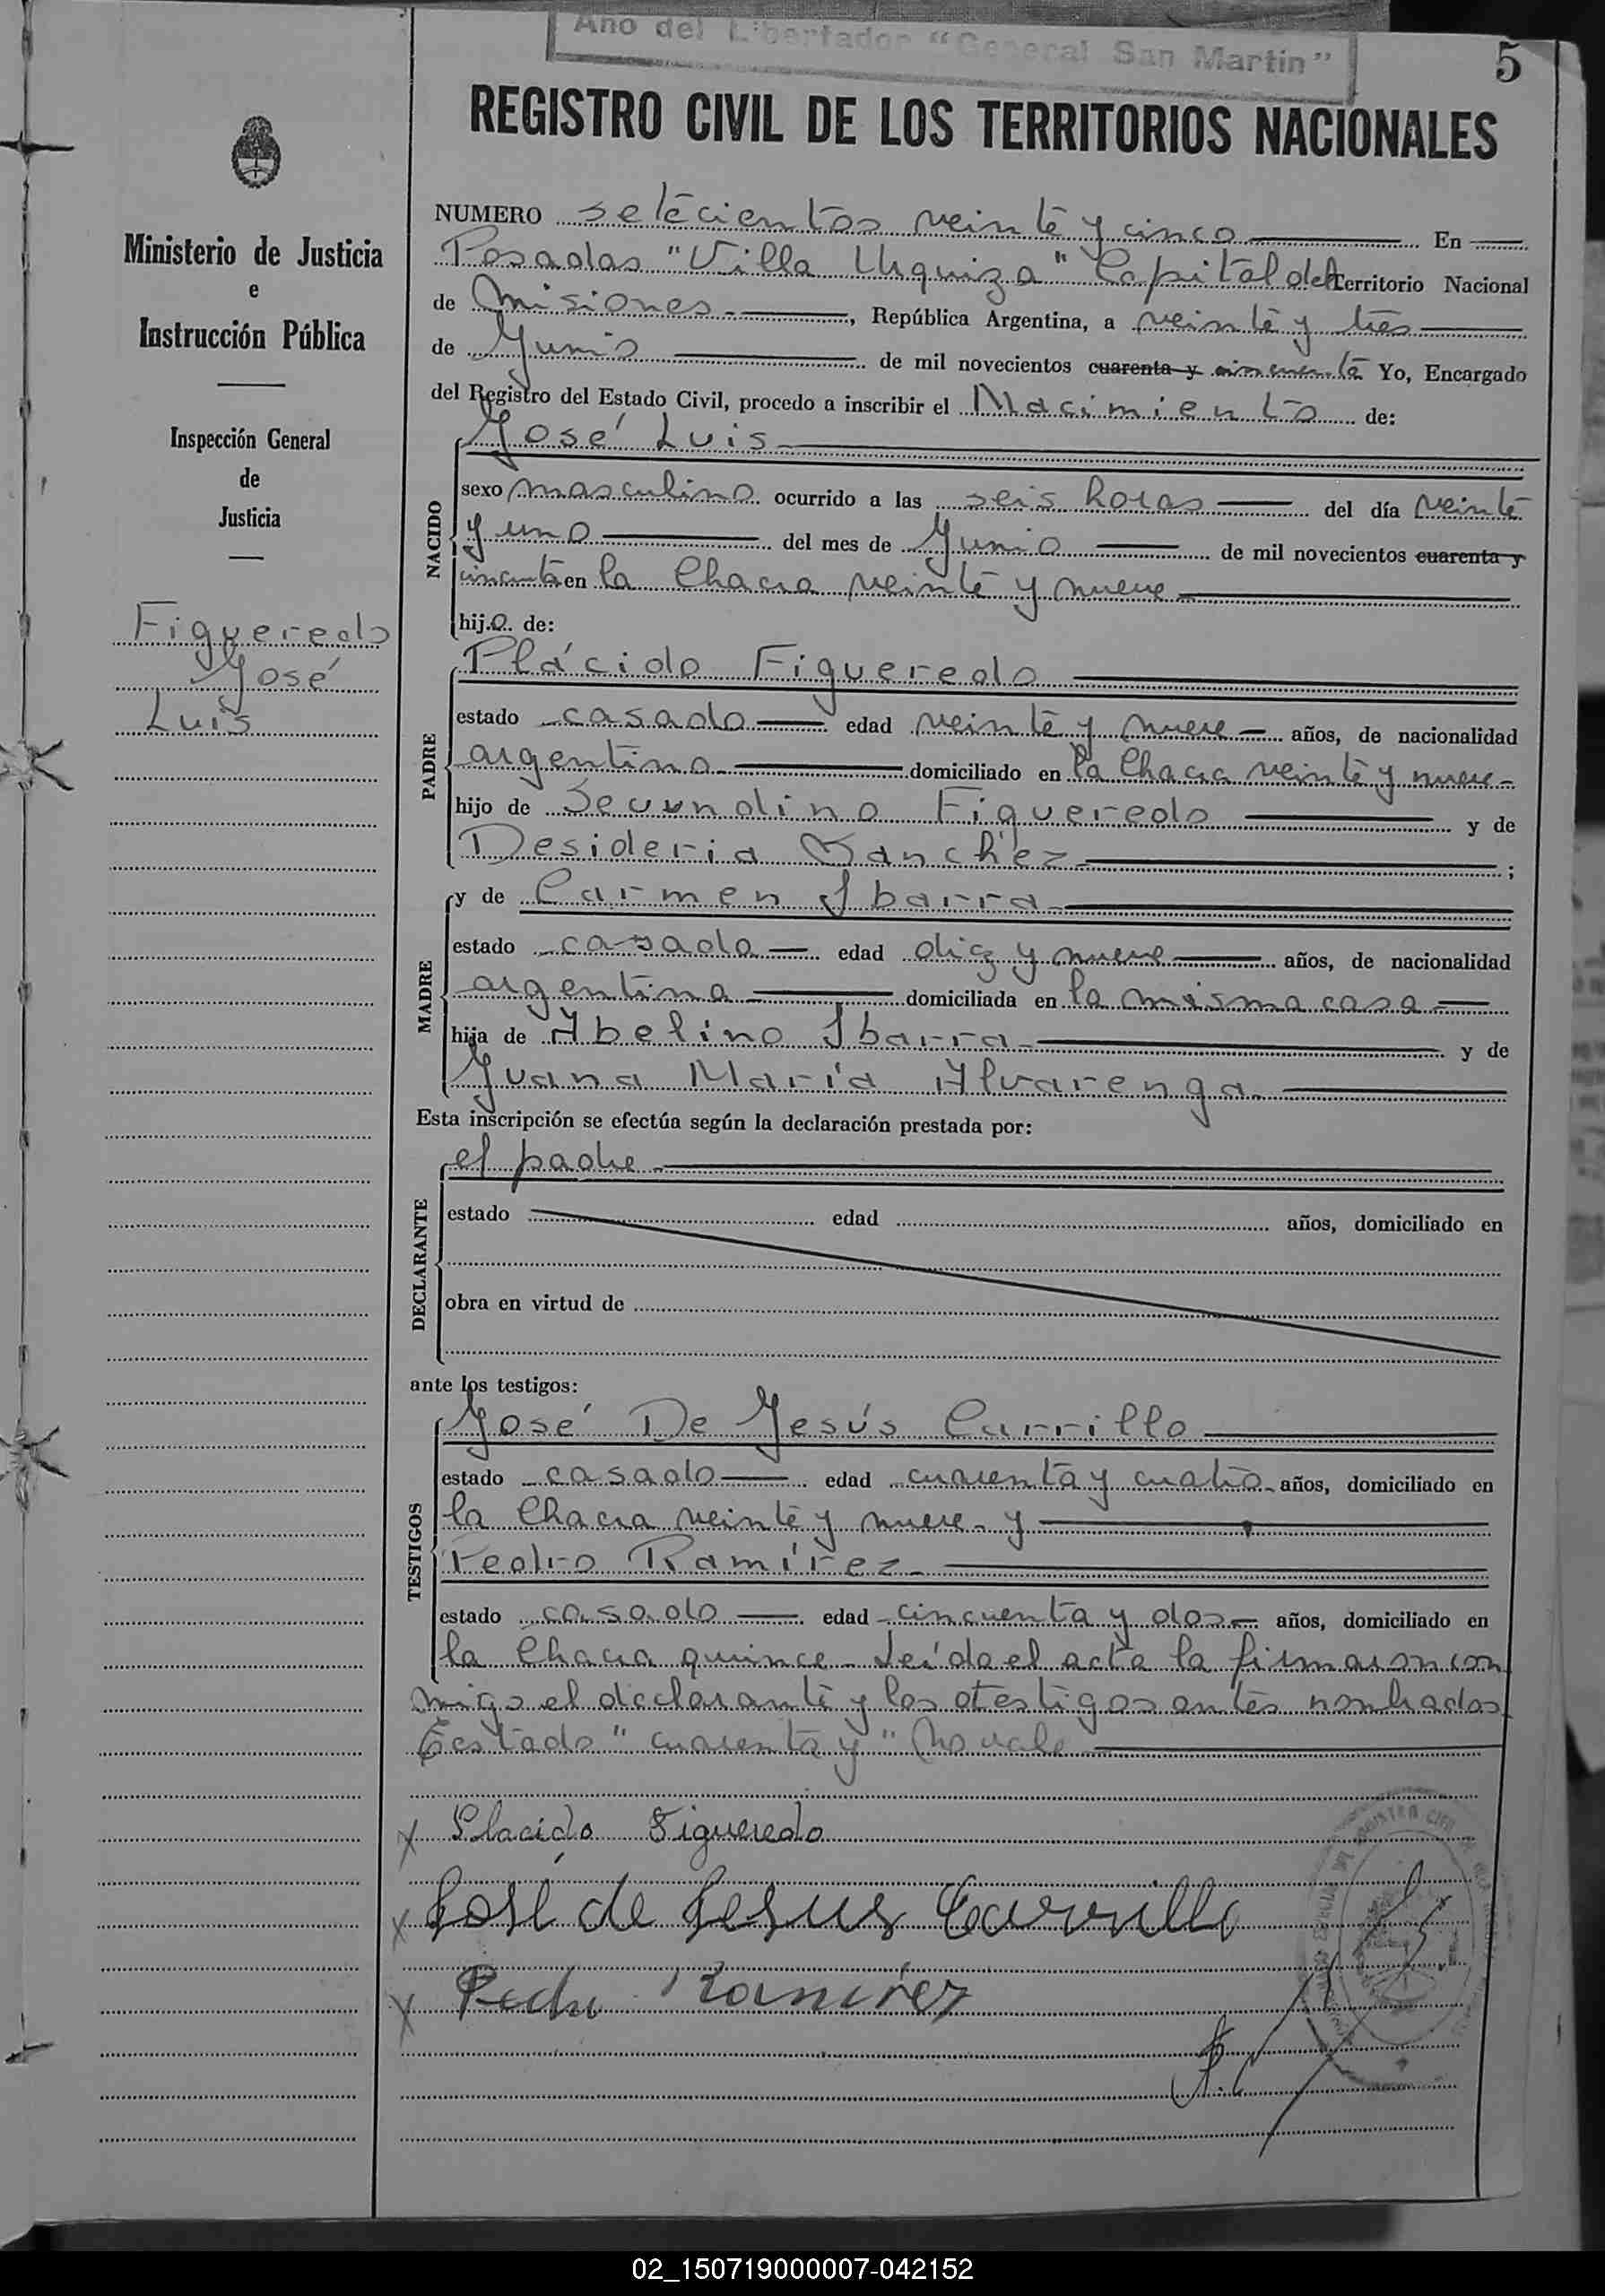 Año del Libertador "General San Martín"
5
REGISTRO CIVIL DE LOS TERRITORIOS NACIONALES
Ministerio de Justicia
e
Instrucción Pública
Inspección General
de
Justicia
Figueredo
José
Luis
NUMERO setecientos veinte y cinco En
Posadas "Villa Urquiza" Capital del Territorio Nacional
de Misiones, República Argentina, a veinte y tres
de Junio de mil novecientos cuarenta y cincuenta Yo, Encargado
del Registro del Estado Civil, procedo a inscribir el Nacimiento de:
NACIDO
José Luis
sexo masculino ocurrido a las seis horas del día veinte
y uno del mes de Junio de mil novecientos cuarenta y
cincuenta en la Chacra veinte y nueve
hijo de:
PADRE
Plácido Figueredo
estado casado edad veinte y nueve años, de nacionalidad
argentino domiciliado en la Chacra veinte y nueve
hijo de Secundino Figueredo y de
Desideria Sanchez;
MADRE
y de Carmen Ibarra
estado casada edad diez y nueve años, de nacionalidad
argentina domiciliada en la misma casa
hija de Abelino Ibarra y de
Juana María Alvarenga
Esta inscripción se efectúa según la declaración prestada por:
DECLARANTE
el padre
estado edad años, domiciliado en
obra en virtud de
ante los testigos:
TESTIGOS
José De Jesús Carrillo
estado casado edad cuarenta y cuatro años, domiciliado en
la Chacra veinte y nueve y
Pedro Ramírez
estado casado edad cincuenta y dos años, domiciliado en
la Chacra quince. Leída el acta la firmaron con
migo el declarante y los testigos antes nombrados
Testado "cuarenta y" No vale
x Placido Figueredo
x José de Jesus Carrillo
x Pedro Ramirez
02_150719000007-042152